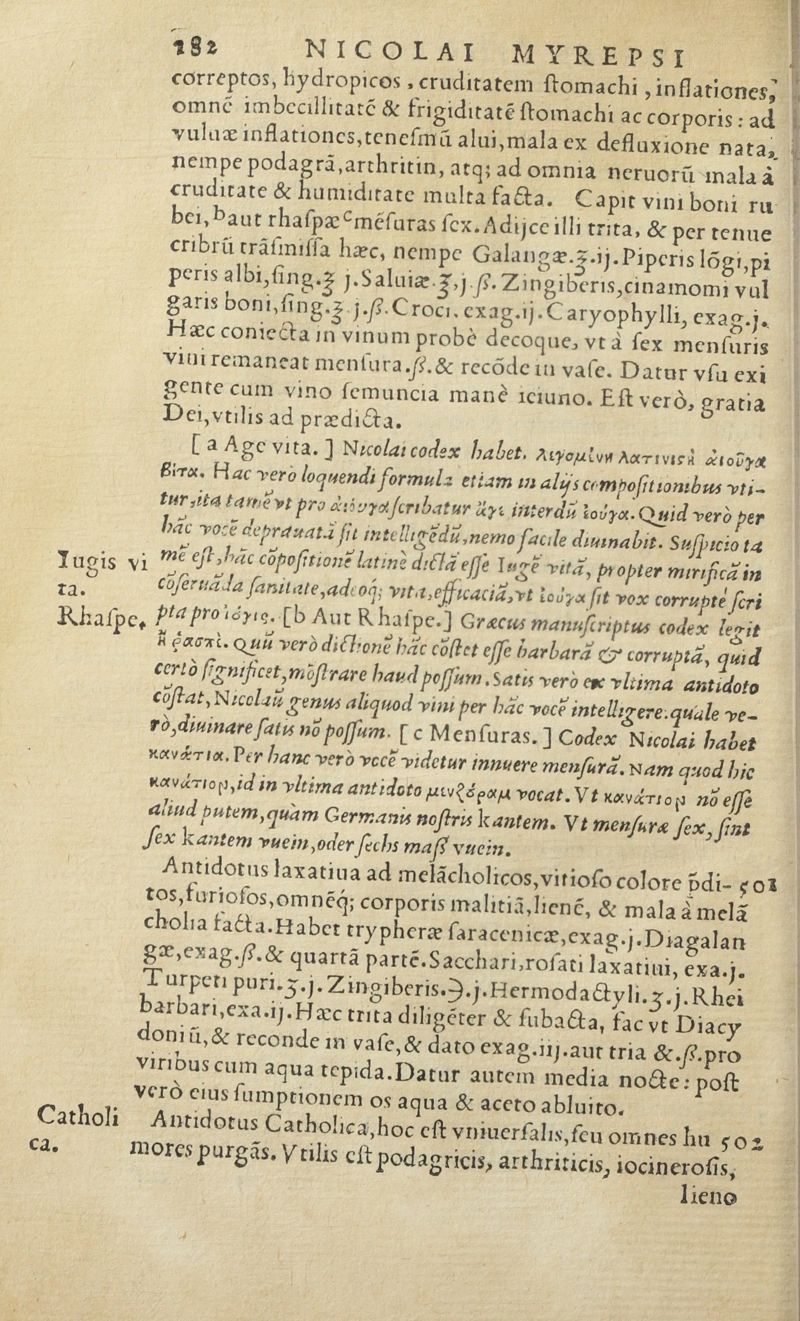 182 NICOLAI MYREPSI
correptos, hydropicos, cruditatem ſtomachi, inflationes,
omnē imbecillitatē & frigiditatē ſtomachi ac corporis: ad
vuluæ inflationes, teneſmū alui, mala ex defluxione nata,
nempe podagrā, arthritin, atq; ad omnia neruorū mala à
cruditate & humiditate multa facta. Capit vini boni ru
bei, b aut rhaſpæ c mēſuras ſex. Adijce illi trita, & per tenue
cribrū trāſmiſſa hæc, nempe Galangæ.ʒ.ij. Piperis lōgi, pi
peris albi, ſing.ʒ j. Saluiæ.ʒ,j.ß. Zingiberis, cinamomi vul
garis boni, ſing.ʒ j.ß. Croci. exag.ij. Caryophylli, exag.j.
Hæc coniecta in vinum probè decoque, vt à ſex menſuris
vini remaneat menſura.ß. & recōde in vaſe. Datur vſu exi
gente cum vino ſemuncia manè ieiuno. Eſt verò, gratia
Dei, vtilis ad prædicta.
[ a Age vita. ] Nicolai codex habet. λεγομένη λατινιστὶ ἀϊοῦγα
βιτα. Hac vero loquendi formula etiam in alijs compoſitionibus vti-
tur, ita tamē vt pro ἀϊούγα ſcribatur ἄγε interdū ἰούγα. Quid vero per
hāc vocē deprauatā ſit intelligēdū, nemo facile diuinabit. Suſpicio ta
Iugis vi
mē eſt, hāc cōpoſitionē latinè dictā eſſe Iugē vitā, propter mirificā in
ta.
cōſeruāda ſanitate, adeoq; vita, efficaciā, vt ἰούγα ſit vox corruptè ſcri
Rhaſpe.
pta pro ἰούγις. [b Aut Rhaſpe.] Græcus manuſcriptus codex legit
ἢ ῥασπὶ. Quū vero dictionē hāc cōſtet eſſe barbarā & corruptā, quid
certò ſignificet, mōſtrare haud poſſum. Satis vero ex vltima antidoto
cōſtat, Nicolaū genus aliquod vini per hāc vocē intelligere. quale ve-
ro, diuinare ſatis nō poſſum. [ c Menſuras. ] Codex Nicolai habet
καννάτια. Per hanc vero vocē videtur innuere menſurā. Nam quod hic
καννάτιον, id in vltima antidoto vocat. Vt καννάτιον nō eſſe
aliud putem, quàm Germanis noſtris kantem. Vt menſuræ ſex, ſint
ſex kantem vuein, oder ſechs maß vuein.
Antidotus laxatiua ad melācholicos, vitioſo colore p̄di- 501
tos, furioſos, omnēq; corporis malitiā, lienē, & mala à melā
cholia facta. Habet trypheræ ſaracenicæ, exag.j. Diagalan
gæ, exag.ß. & quartā partē. Sacchari, roſati laxatiui, exa.j.
Turpeti puri.ʒ.j. Zingiberis.℈.j. Hermodactyli.ʒ.j. Rhei
barbari, exa.ij. Hæc trita diligēter & ſubacta, fac vt Diacy
doniū, & reconde in vaſe, & dato exag.iij. aut tria & .ß. pro
viribus cum aqua tepida. Datur autem media nocte: poſt
verò eius ſumptionem os aqua & aceto abluito.
Catholi
Antidotus Catholica, hoc eſt vniuerſalis, ſeu omnes hu 502
ca.
mores purgās. Vtilis eſt podagricis, arthriticis, iocineroſis,
lieno